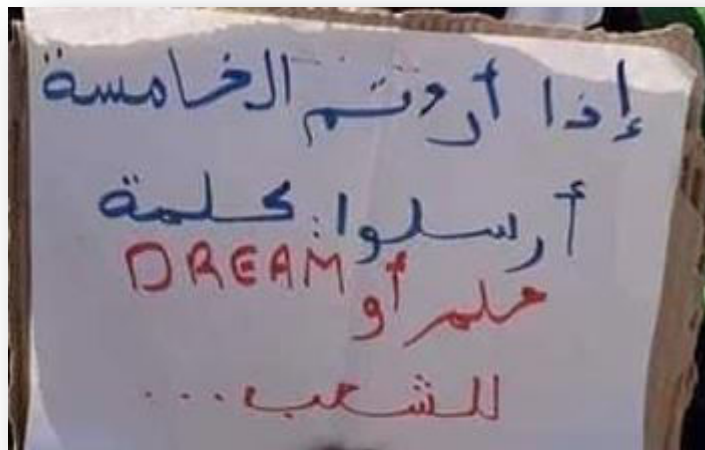 إذا أردتم الخامسة
أرسلوا: كلمة
حلم أو DREAM
للشعب...